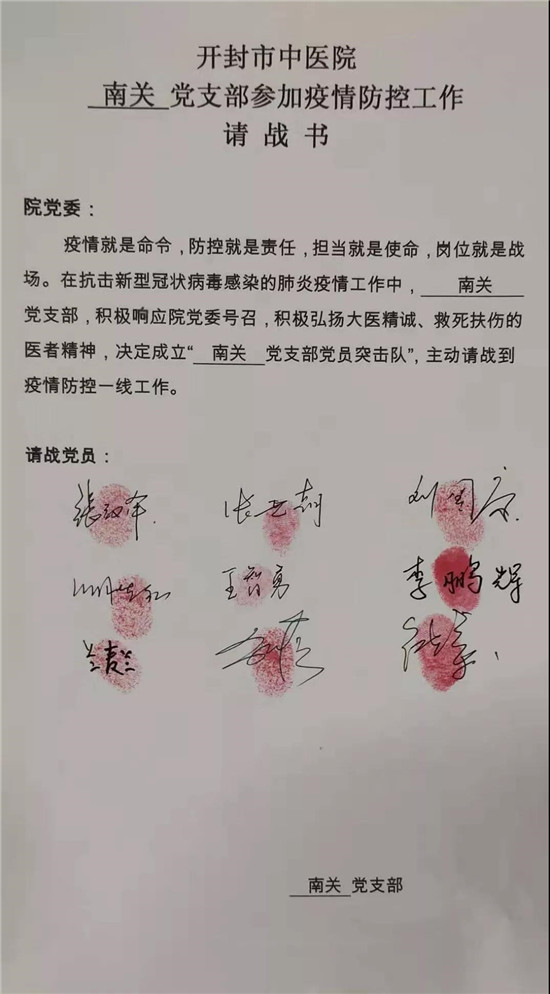 开封市中医院
南关 党支部参加疫情防控工作
请战书
院党委：
疫情就是命令，防控就是责任，担当就是使命，岗位就是战
场。在抗击新型冠状病毒感染的肺炎疫情工作中， 南关
党支部，积极响应院党委号召，积极弘扬大医精诚、救死扶伤的
医者精神，决定成立“ 南关 党支部党员突击队”，主动请战到
疫情防控一线工作。
请战党员：
王智勇 李鹏辉
南关 党支部